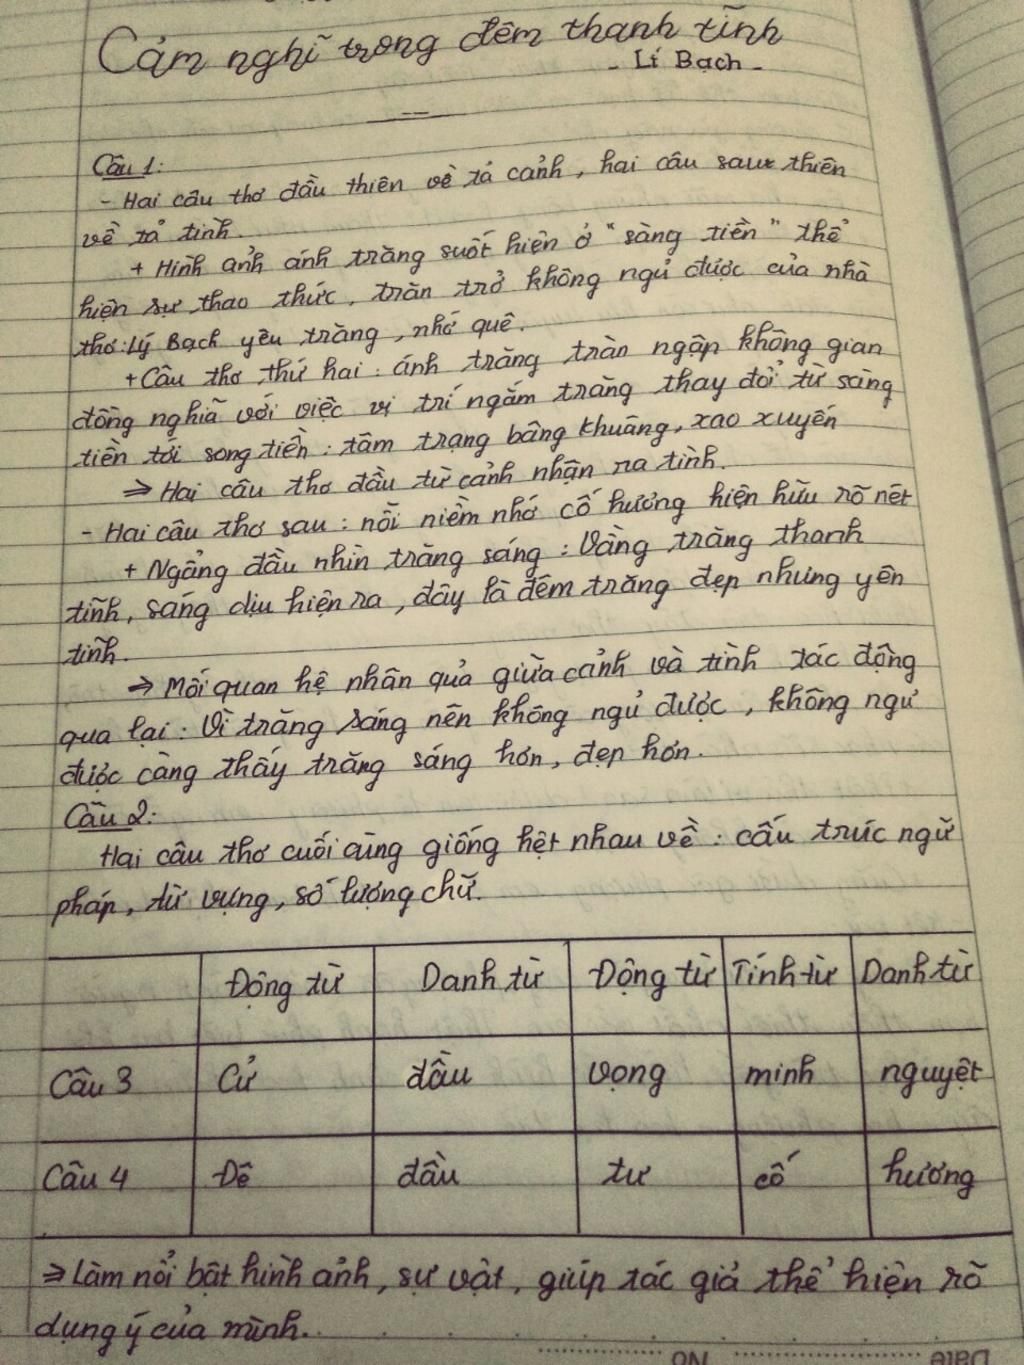 Cảm nghĩ trong đêm thanh tĩnh
- Lí Bạch -
Câu 1:
- Hai câu thơ đầu thiên về tả cảnh, hai câu sau thiên
về tả tình.
+ Hình ảnh ánh trăng suốt hiện ở "sàng tiền" thể
hiện sự thao thức, trăn trở không ngủ được của nhà
thơ: Lý Bạch yêu trăng, nhớ quê.
+ Câu thơ thứ hai: ánh trăng tràn ngập không gian
đồng nghĩa với việc vị trí ngắm trăng thay đổi từ sàng
tiền tới song tiền: tâm trạng bâng khuâng, xao xuyến
⇒ Hai câu thơ đầu từ cảnh nhận ra tình.
- Hai câu thơ sau: nỗi niềm nhớ cố hương hiện hữu rõ nét
+ Ngẩng đầu nhìn trăng sáng: Vầng trăng thanh
tĩnh, sáng dịu hiện ra, đây là đêm trăng đẹp nhưng yên
tĩnh.
⇒ Mối quan hệ nhân quả giữa cảnh và tình tác động
qua lại: Vì trăng sáng nên không ngủ được, không ngư
được càng thấy trăng sáng hơn, đẹp hơn.
Câu 2:
Hai câu thơ cuối cùng giống hệt nhau về: cấu trúc ngữ
pháp, từ vựng, số lượng chữ.
Động từ Danh từ Động từ Tính từ Danh từ
Câu 3 Cử đầu vọng minh nguyệt
Câu 4 Đê đầu tư cố hương
⇒ Làm nổi bật hình ảnh, sự vật, giúp tác giả thể hiện rõ
dụng ý của mình.
Date No